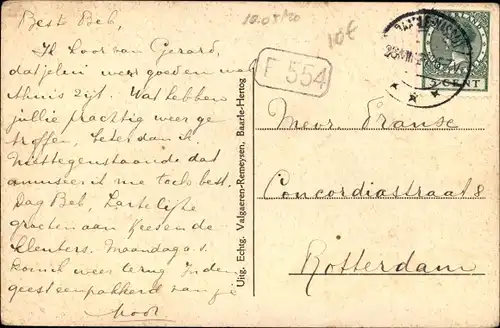 Best Beb,
Ik hoor van Gerard,
dat jelui weer goed en wel
thuis zijt. Wat hebben
jullie prachtig weer ge
troffen, beter dan ik.
Niettegenstaande dat
amuseer ik me toch best.
Dag Beb, hartelijke
groeten aan Kees en de
kleuters. Maandag a.s.
kom ik weer terug. In den
geest een pakkerd van je
10€
F 554
Uitg. Echtg. Valgaeren-Remeysen, Baarle-Hertog
BAARLE-NASSAU
5 CENT
Mevr. Franse
Concordiastraat 8
Rotterdam